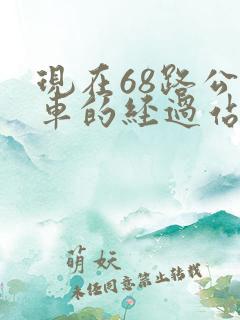 現在68路公
車的經過佔
萌妖
未经同意禁止转载